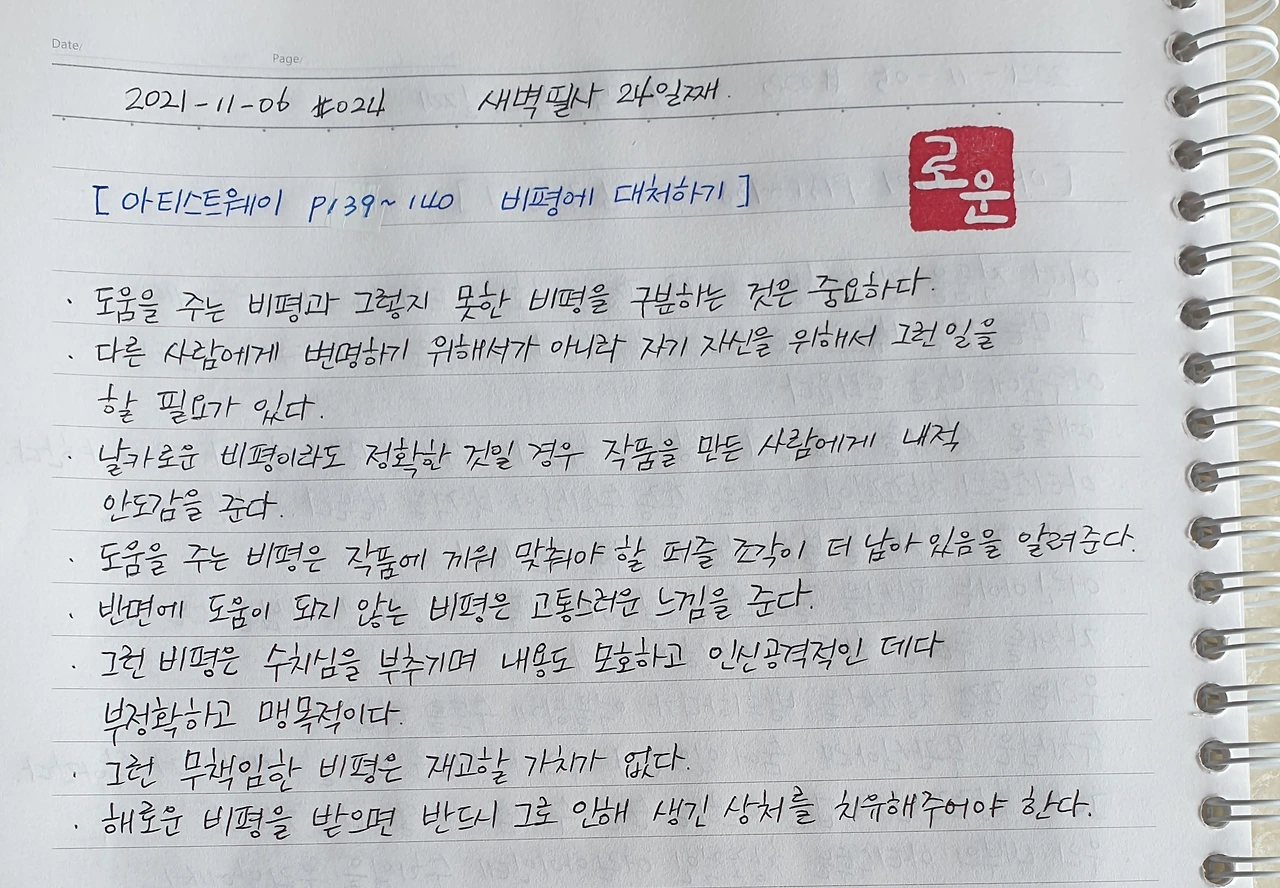 Date/
Page/
2021-11-06 #024 새벽필사 24일째.
[ 아티스트웨이 P139~140 비평에 대처하기 ]
로운
· 도움을 주는 비평과 그렇지 못한 비평을 구분하는 것은 중요하다.
· 다른 사람에게 변명하기 위해서가 아니라 자기 자신을 위해서 그런 일을
할 필요가 있다.
· 날카로운 비평이라도 정확한 것일 경우 작품을 만든 사람에게 내적
안도감을 준다.
· 도움을 주는 비평은 작품에 끼워 맞춰야 할 퍼즐 조각이 더 남아 있음을 알려준다.
· 반면에 도움이 되지 않는 비평은 고통스러운 느낌을 준다.
· 그런 비평은 수치심을 부추기며 내용도 모호하고 인신공격적인 데다
부정확하고 맹목적이다.
· 그런 무책임한 비평은 재고할 가치가 없다.
· 해로운 비평을 받으면 반드시 그로 인해 생긴 상처를 치유해주어야 한다.